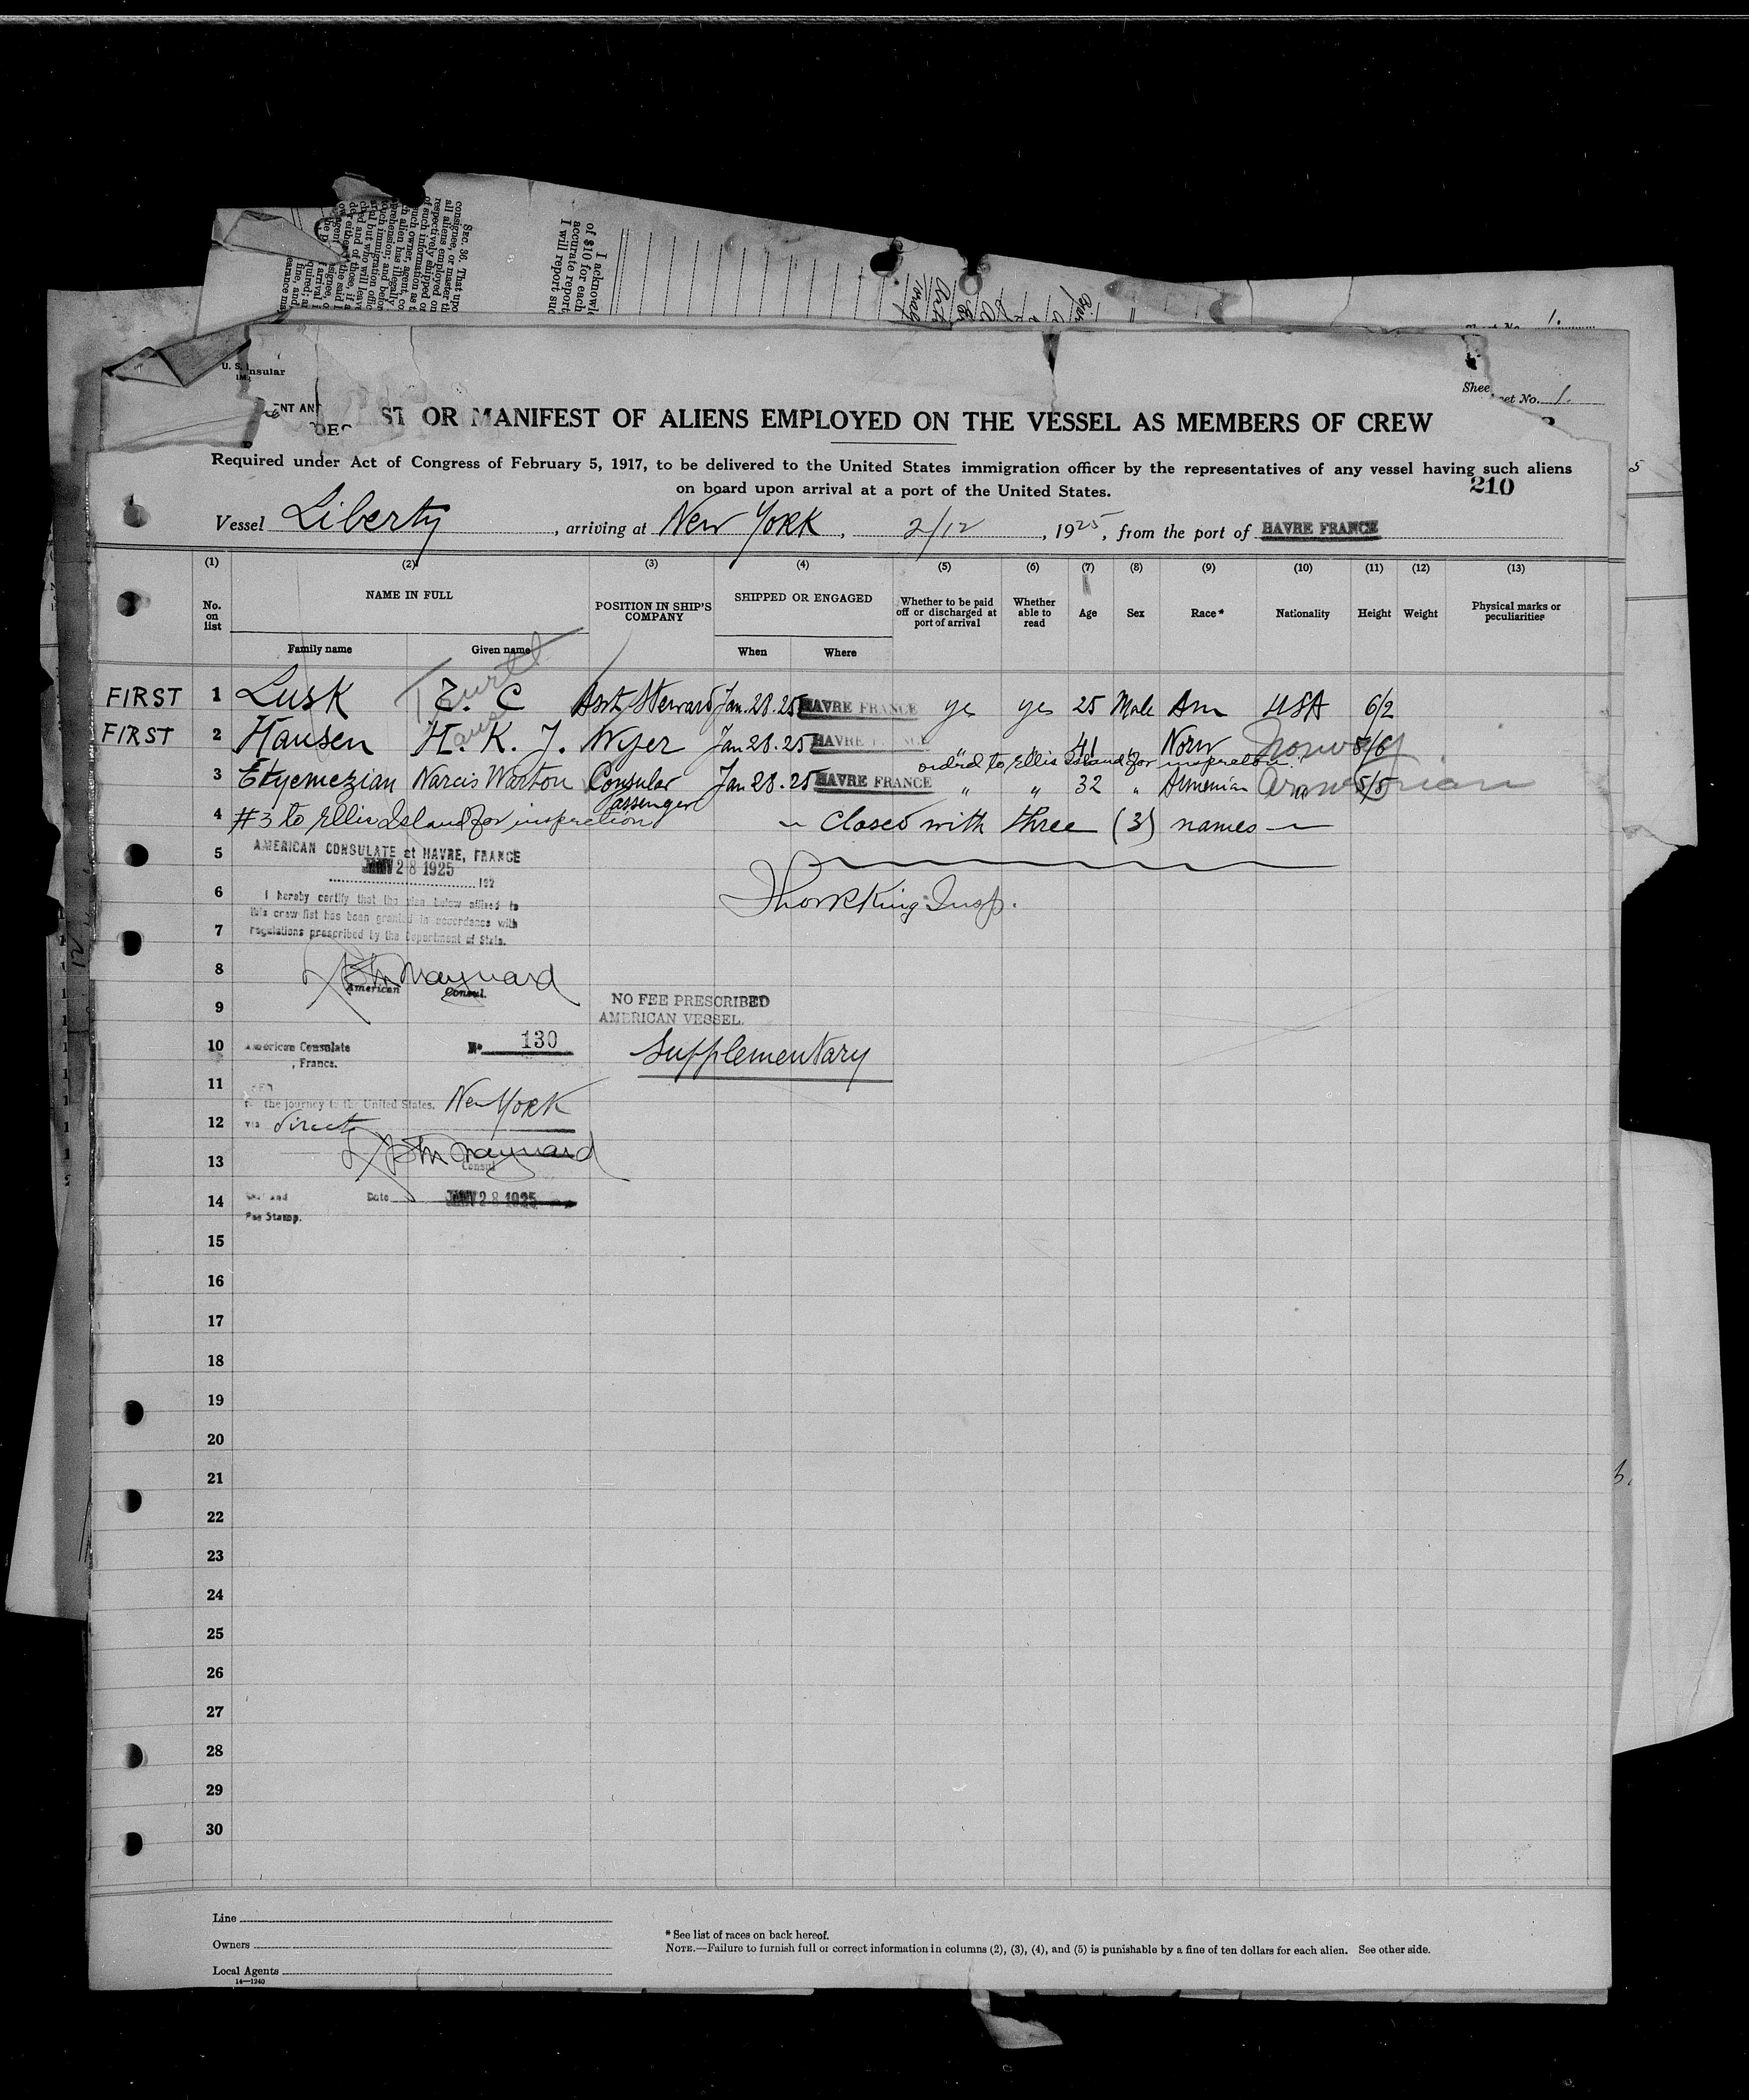 Sec. 36. That upo
consignee, or master th
all aliens employed on
respectively shipped or
of such information as t
such owner, agent, co
h alien has illegally
I acknowl
of $10 for each
accurate report
I will report suc
1.
U. S.
Insular
Shee
eet No. 1.
ENT AN
ST OR MANIFEST OF ALIENS EMPLOYED ON THE VESSEL AS MEMBERS OF CREW
Required under Act of Congress of February 5, 1917, to be delivered to the United States immigration officer by the representatives of any vessel having such aliens
on board upon arrival at a port of the United States.
210
Vessel Liberty, arriving at New York, 2/12, 1925, from the port of HAVRE FRANCE
(1) (2) (3) (4) (5) (6) (7) (8) (9) (10) (11) (12) (13)
No. on list NAME IN FULL POSITION IN SHIP'S COMPANY SHIPPED OR ENGAGED Whether to be paid off or discharged at port of arrival Whether able to read Age Sex Race* Nationality Height Weight Physical marks or peculiarities
Family name Given name When Where
FIRST 1 Lusk E. C Asst Steward Jan. 28. 25 HAVRE FRANCE yes yes 25 Male Am USA 6/2
FIRST 2 Hansen H. K. J. Wiper Jan 28. 25 HAVRE " " 41 " Norw Norway 5/6
ord'd to Ellis Island for inspection
3 Ekyemezian Narcis Warton Consular Passenger Jan 28. 25 HAVRE FRANCE " " 32 " Armenian Armenian 5/5
4 #3 to Ellis Island for inspection Closed with three (3) names
5 AMERICAN CONSULATE at HAVRE, FRANCE
JAN 28 1925
192
6 I hereby certify that the visa below affixed to
this crew list has been granted in accordance with
7 regulations prescribed by the Department of State.
King Insp.
8 Maynard
American Consul.
9 NO FEE PRESCRIBED
AMERICAN VESSEL.
10 American Consulate No 130 Supplementary
, France.
11 the journey to the United States. New York
12 via direct
13 Maynard
Consul
14 Date JAN 28 1925
Fee Stamp.
15
16
17
18
19
20
21
22
23
24
25
26
27
28
29
30
Line
Owners
Local Agents
14—1240
* See list of races on back hereof.
NOTE.—Failure to furnish full or correct information in columns (2), (3), (4), and (5) is punishable by a fine of ten dollars for each alien. See other side.